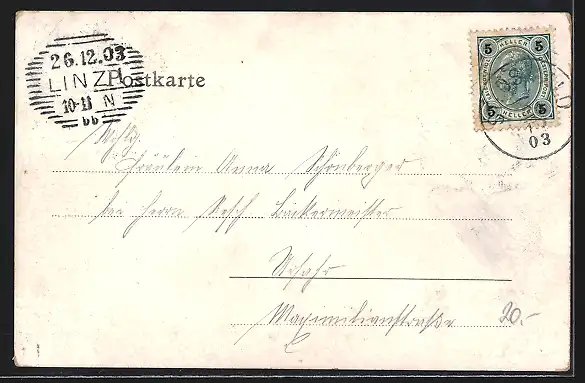 26.12.03
LINZ 1
10-11 N
bb
Postkarte
5 HELLER 5
5 HELLER 5
03
Wohlg.
Fräulein Anna Schönberger
bei Herrn Resch Bäckermeister
Urfahr
Maximilianstraße
20.-